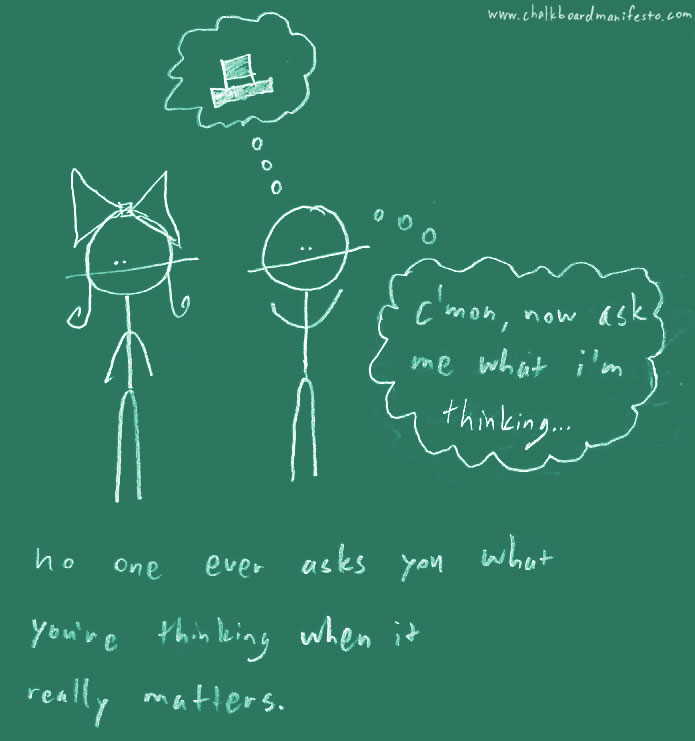 www.chalkboardmanifesto.com
c'mon, now ask
me what i'm
thinking...
no one ever asks you what
you're thinking when it
really matters.